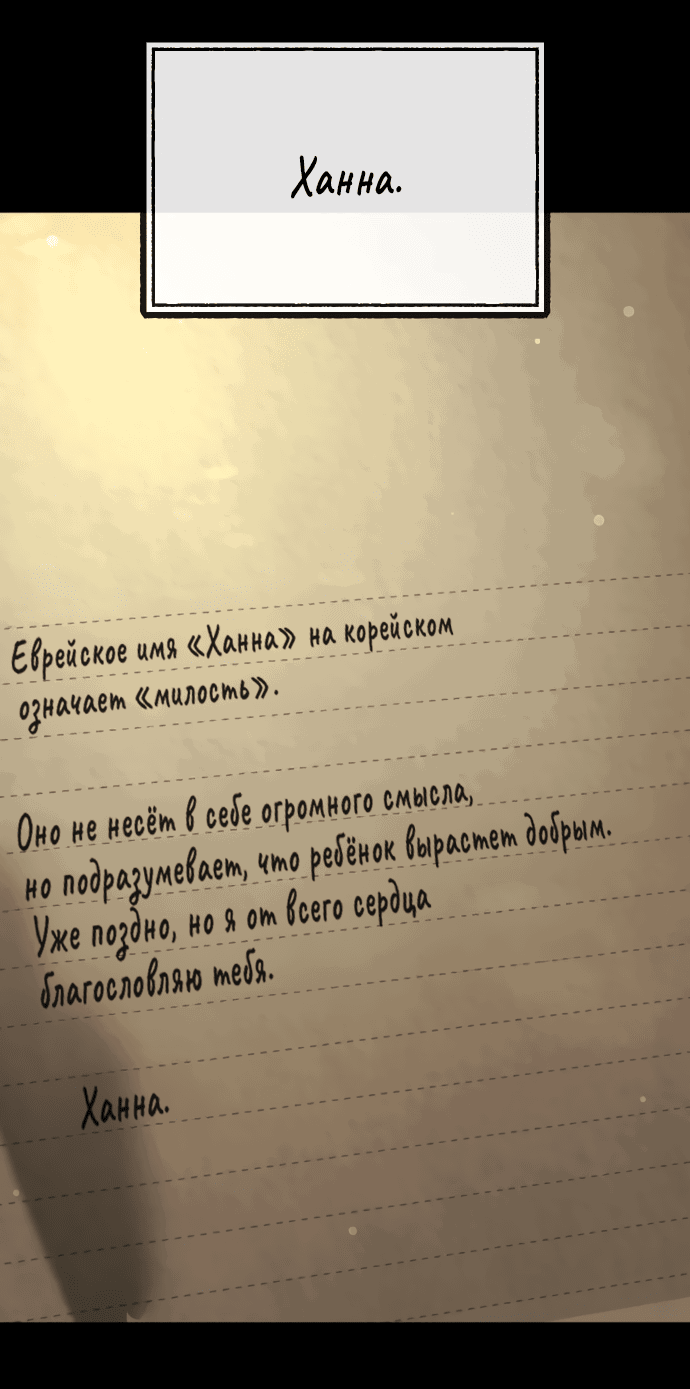 Ханна.
Еврейское имя «Ханна» на корейском
означает «милость».
Оно не несёт в себе огромного смысла,
но подразумевает, что ребёнок вырастет добрым.
Уже поздно, но я от всего сердца
благословляю тебя.
Ханна.